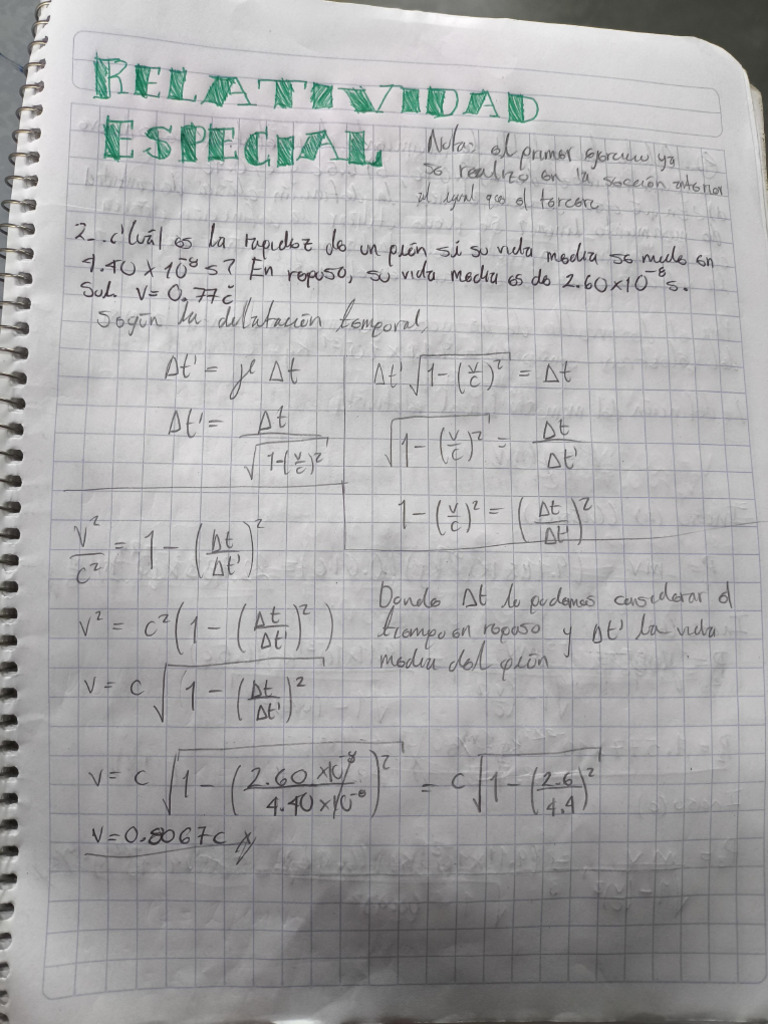 RELATIVIDAD
ESPECIAL
Nota: el primer ejercicio ya
se realizó en la sección anterior
al igual que el tercero
2_. ¿Cuál es la rapidez de un pión si su vida media se mide en
4.40 x 10⁻⁸ s? En reposo, su vida media es de 2.60x10⁻⁸ s.
Sol. V=0.77c
Según la dilatación temporal,
Δt' = γ Δt
Δt' = Δt / √(1-(v/c)²)
Δt' √(1-(v/c)²) = Δt
√(1-(v/c)²) = Δt/Δt'
1-(v/c)² = (Δt/Δt')²
V²/c² = 1-(Δt/Δt')²
V² = c²(1-(Δt/Δt')²)
V = c √(1-(Δt/Δt')²)
Donde Δt lo podemos considerar el
tiempo en reposo y Δt' la vida
media del pión
V = c √(1-(2.60 x10⁻⁸/4.40 x10⁻⁸)²) = c √(1-(2.6/4.4)²)
V=0.8067c